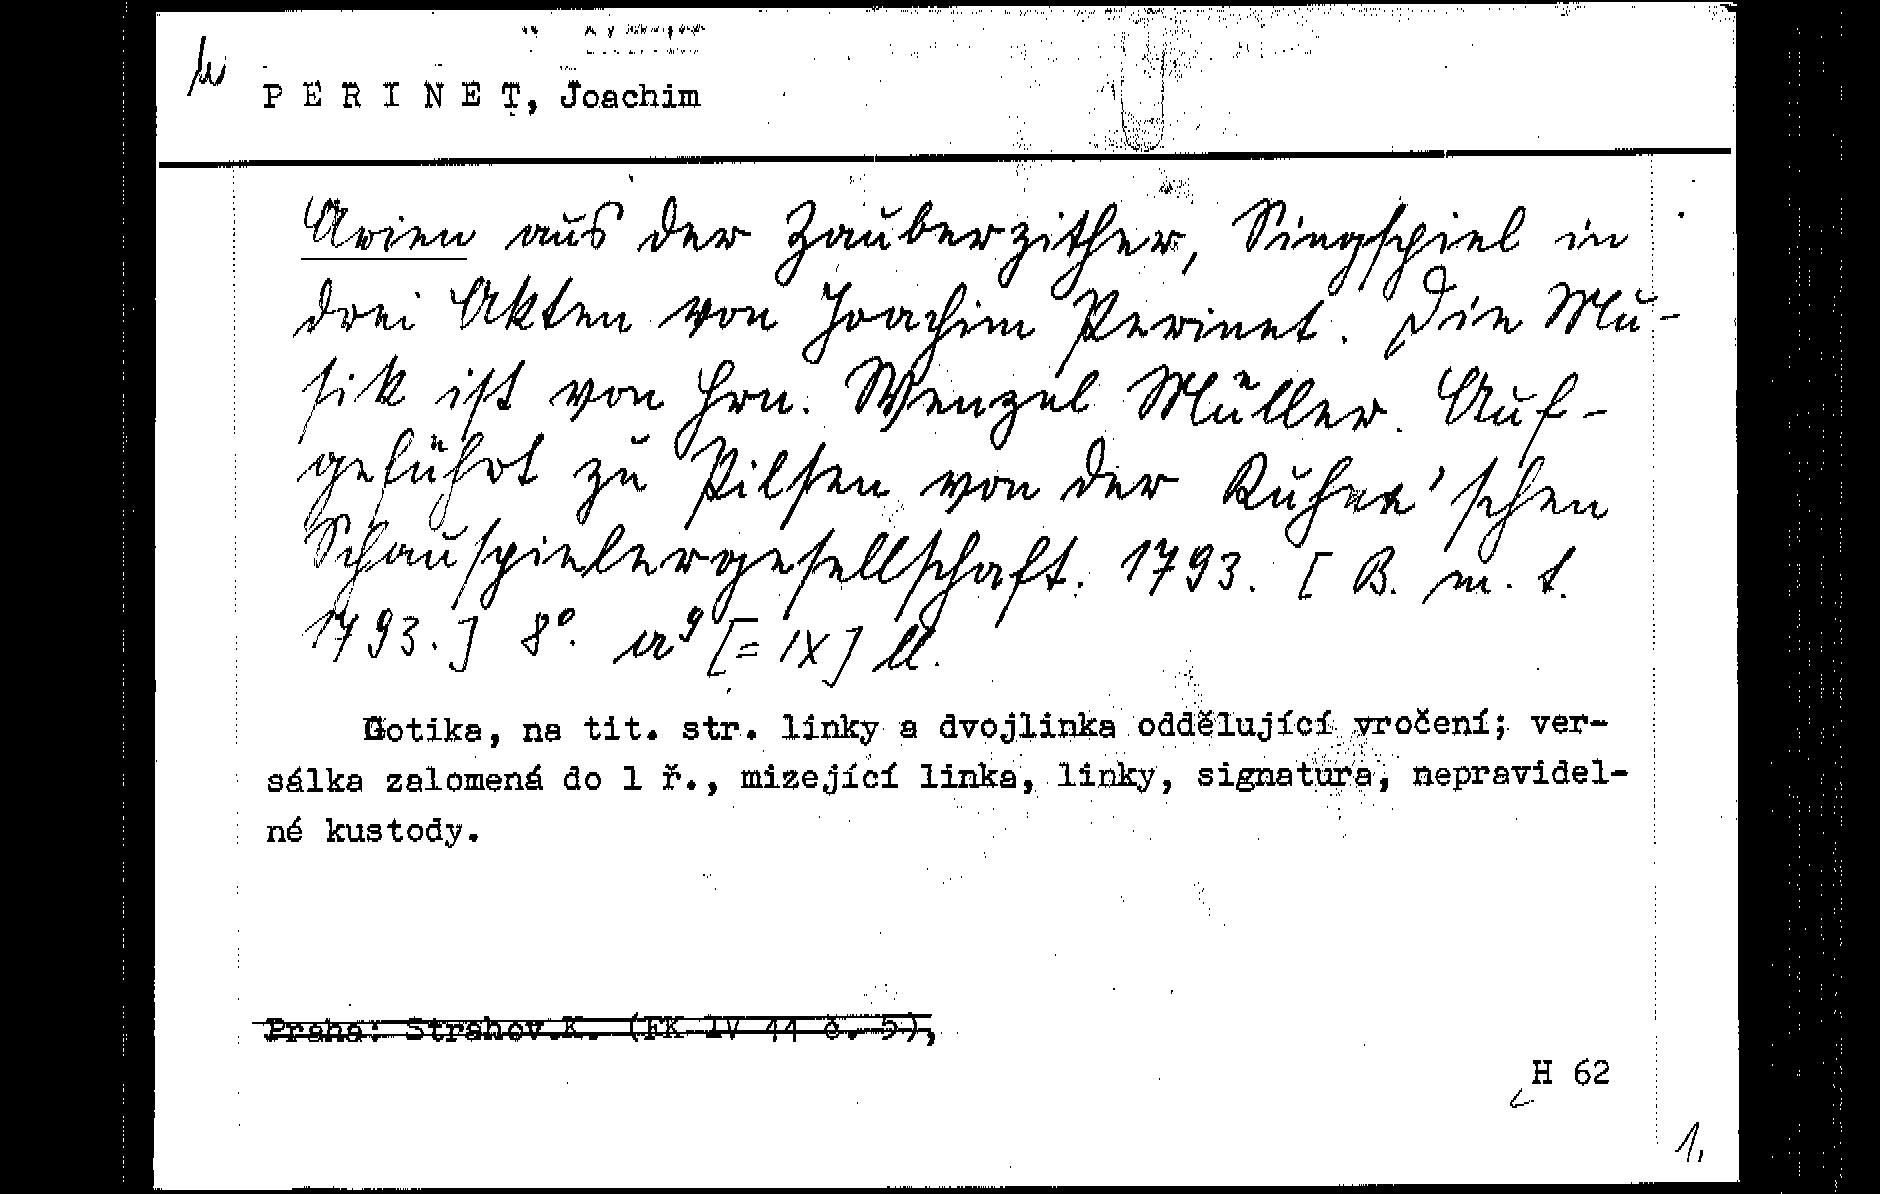 P E R I N E T, Joachim
Arien aus der Zauberzither, Singspiel in
drei Akten von Joachim Perinet. Die Mu-
sik ist von Hrn. Wenzel Müller. Auf-
geführt zu Pilsen von der Kuhn'schen
Schauspielergesellschaft. 1793. [B. m. t.
1793.] 8°. a⁹ [= IX] ll.
Gotika, na tit. str. linky a dvojlinka oddělující vročení; ver-
sálka zalomená do 1 ř., mizející linka, linky, signatura, nepravidel-
né kustody.
Praha: Strahov.K. (FK IV 44 č. 5),
H 62
1,